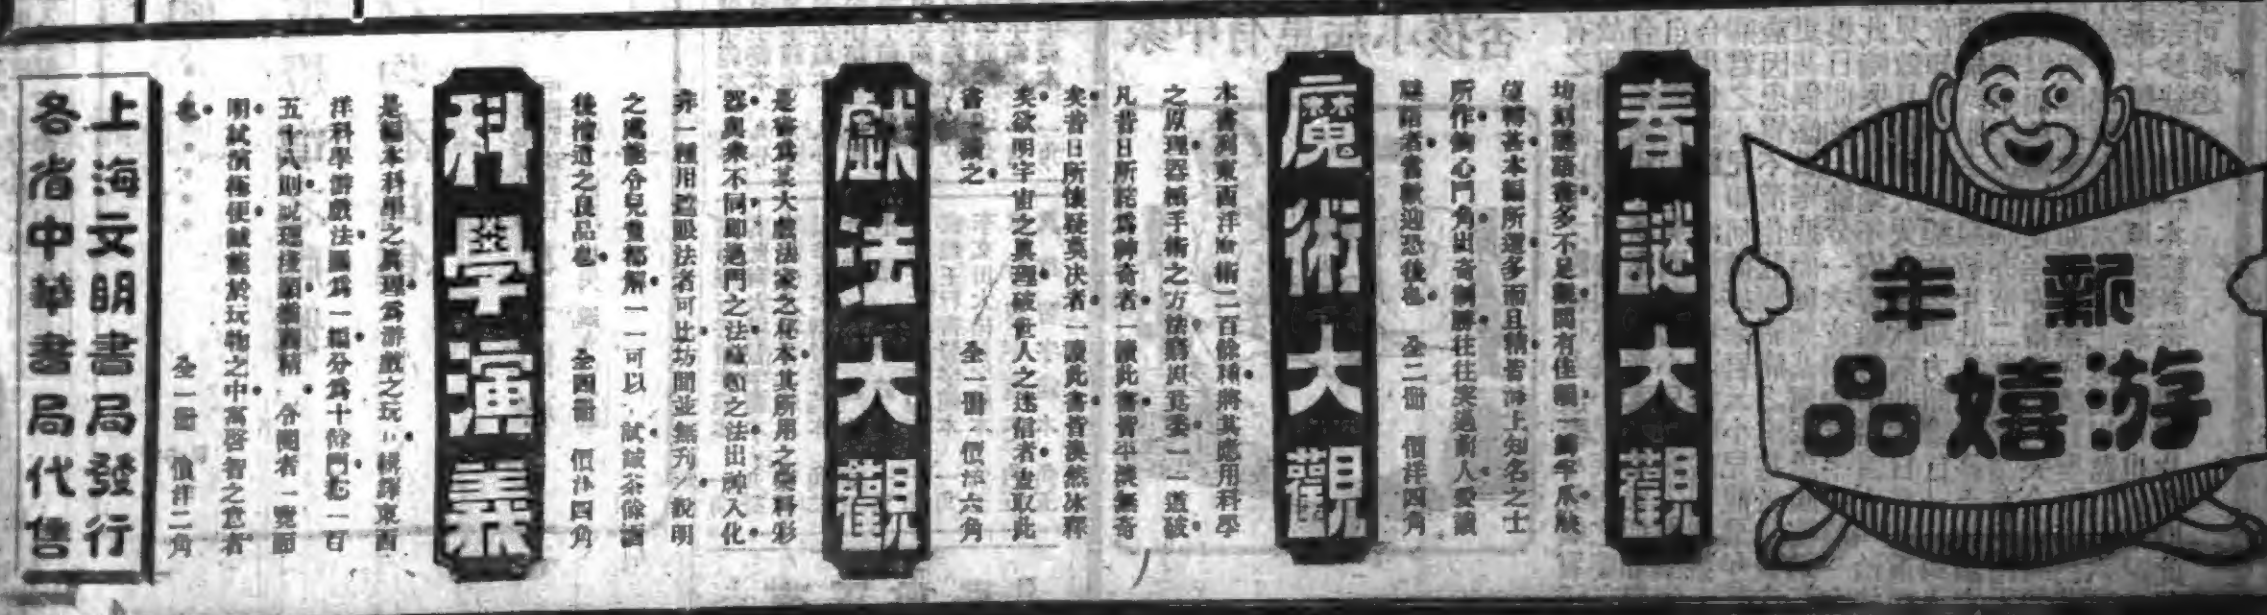 新年
游嬉品
春謎大觀
坊刻謎語書多不足觀間有佳
本編所選多而且精皆海上知名之士
所作鉤心鬥角出奇制勝往往突過前人愛讀
者當歡迎恐後也 全二冊 價洋四角
魔術大觀
本書列東西洋魔術二百餘種將其應用科學
之原理器械手術之方法一一道破
凡昔日所詫為神奇者一讀此書皆平淡無奇
矣昔日所懷疑莫決者一讀此書皆渙然冰釋
矣欲明宇宙之真理破世人之迷信者盍取此
書一讀之 全一冊 價洋六角
戲法大觀
是書為某大戲法家之秘本其所用之藥料彩
器與衆不同即過門之法出神入化
非一種用遮眼法者可比坊間並無刊 說明
之處能令兒童都解一一可以 試誠茶餘酒
後 道之良品也 全四冊 價洋四角
科學演義
是編本科學之真理為游戲之玩 東西
洋科學游戲法 為一編分為十餘門都一百
五十八則說理 分閱者一覽而
明試演極便誠寓於玩物之中寓啓智之意者
也 全一冊 價洋二角
上海文明書局發行
各省中華書局代售